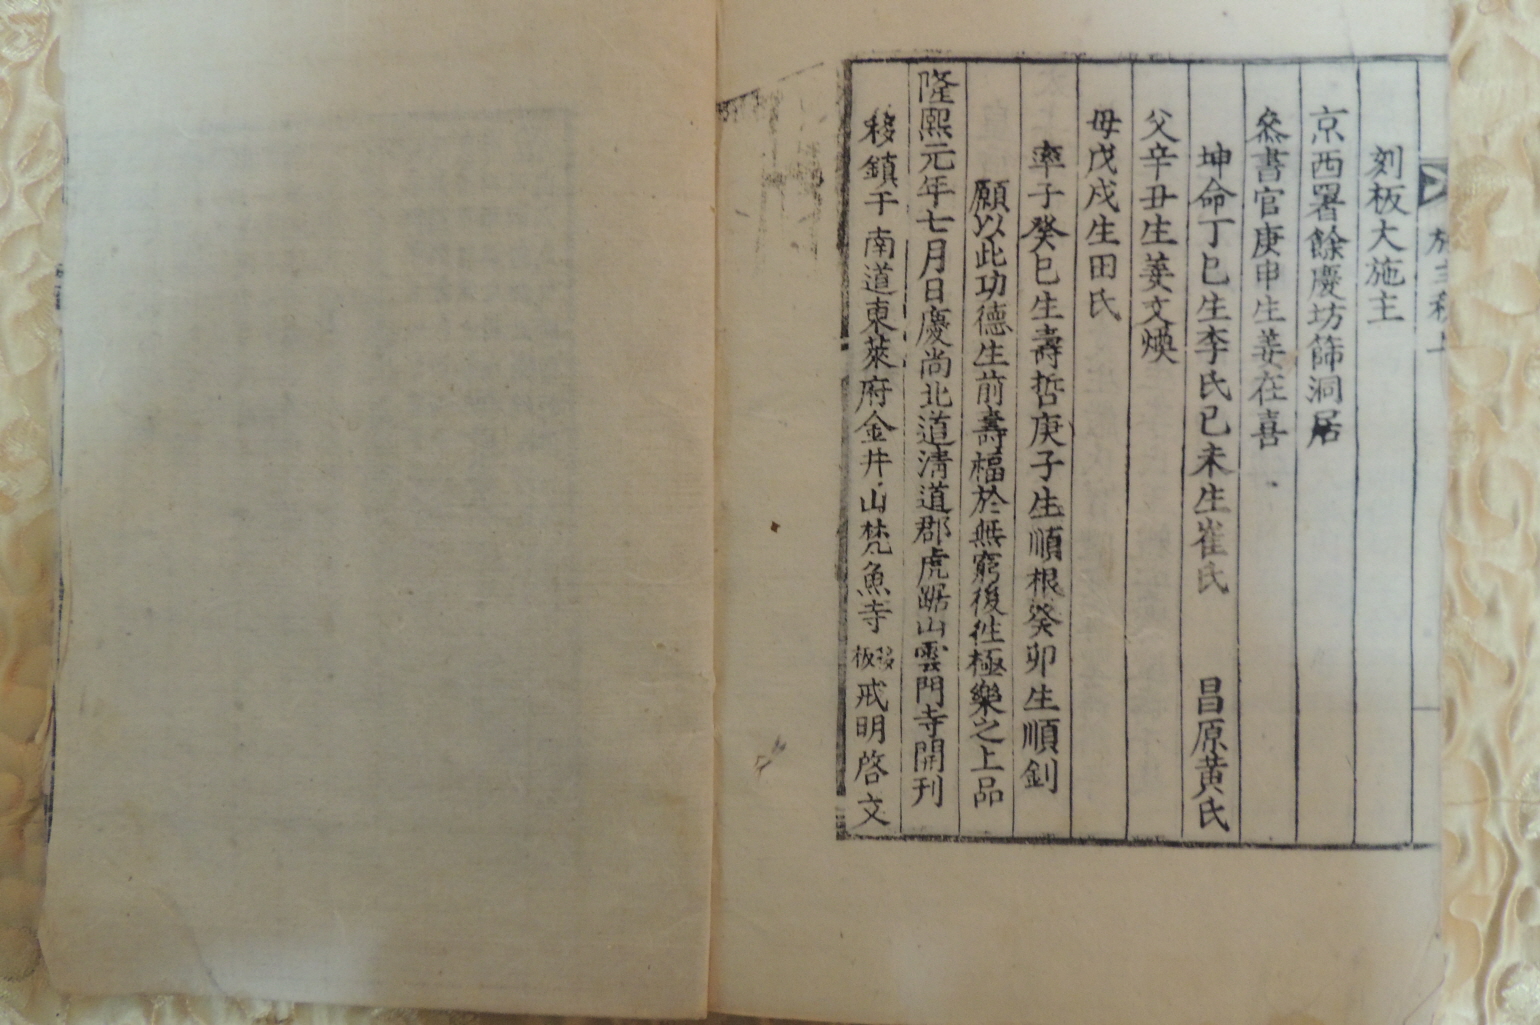 施主秩
刻板大施主
京西署餘慶坊篩洞居
叅書官庚申生姜在喜
坤命丁巳生李氏己未生崔氏 昌原黃氏
父辛丑生姜文煥
母戊戌生田氏
率子癸巳生壽哲庚子生順根癸卯生順釗
願以此功德生前壽福於無窮後徃極樂之上品
隆熙元年七月日慶尚北道清道郡虎踞山雲門寺開刊
移鎮于南道東萊府金井山梵魚寺 移板 戒明啓文